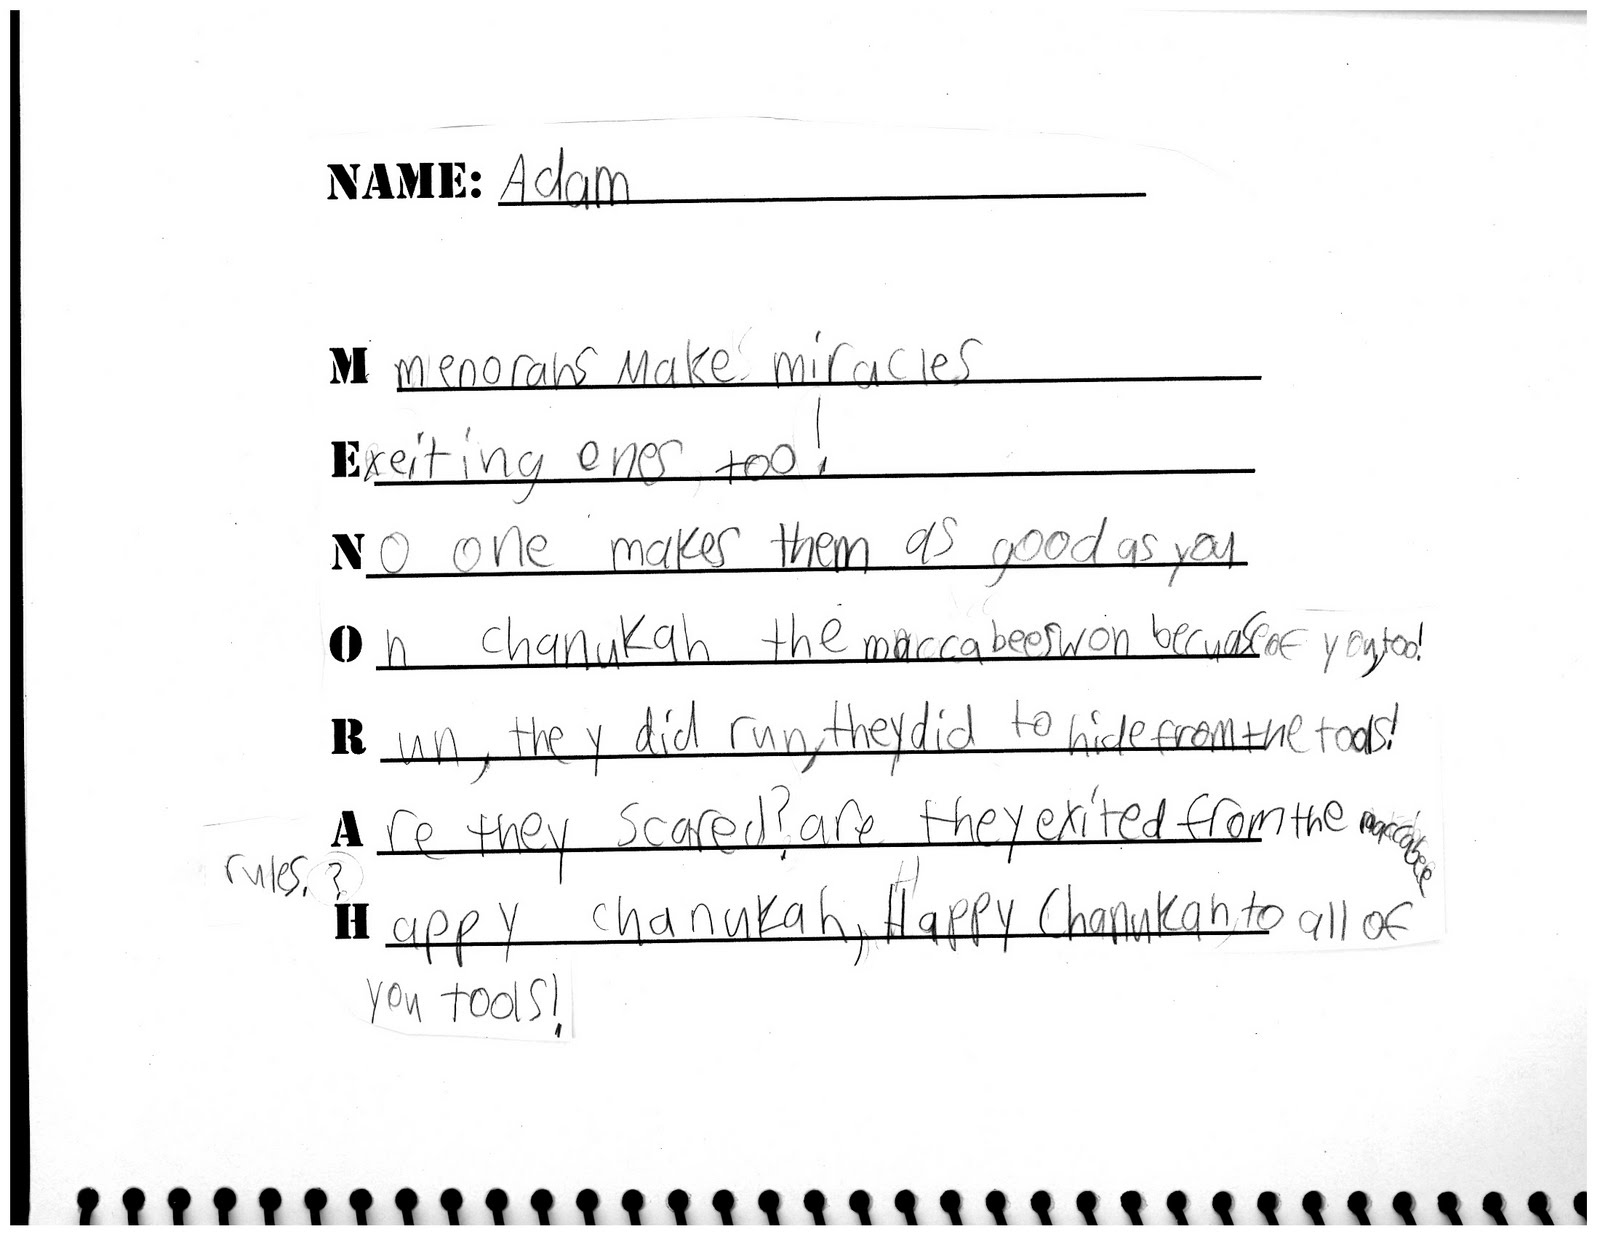 NAME: Adam
M menorahs make miracles
Exeiting ones too!
No one makes them as good as you
On chanukah the maccabees won becuase of you, too!
Run, they did run, they did to hide from the tools!
Are they scared? are they exited from the maccabee
rules.?
Happy chanukah, Happy Chanukah to all of
you tools!